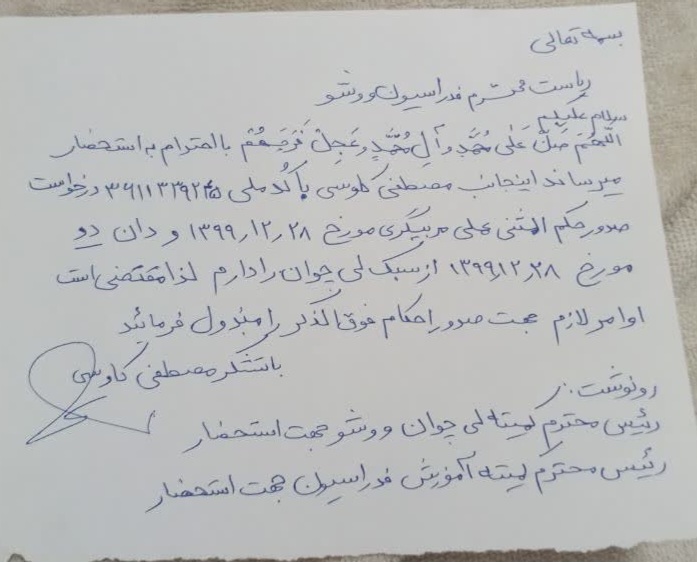 بسمه تعالی
ریاست محترم فدراسیون ووشو
سلام علیکم
اللّهُمَ صَلِّ عَلی مُحَمَّدٍ وَ آلِ مُحَمَّدٍ وَ عَجِلْ فَرَجَهُمْ با احترام به استحضار
میرساند اینجانب مصطفی کاوسی با کُد ملی درخواست
صدور حکم المثنی عملی مربیگری مورخ ۱۳۹۹٫۱۲٫۲۸ و دان دو
مورخ ۱۳۹۹٫۱۲٫۲۸ از سبک لی چوان را دارم لذا مقتضی است
اوامر لازم جهت صدور احکام فوق الذکر را مبذول فرمائید
باتشکر مصطفی کاوسی
رونوشت:
رئیس محترم کمیته لی چوان ووشو جهت استحضار
رئیس محترم کمیته آموزش فدراسیون جهت استحضار